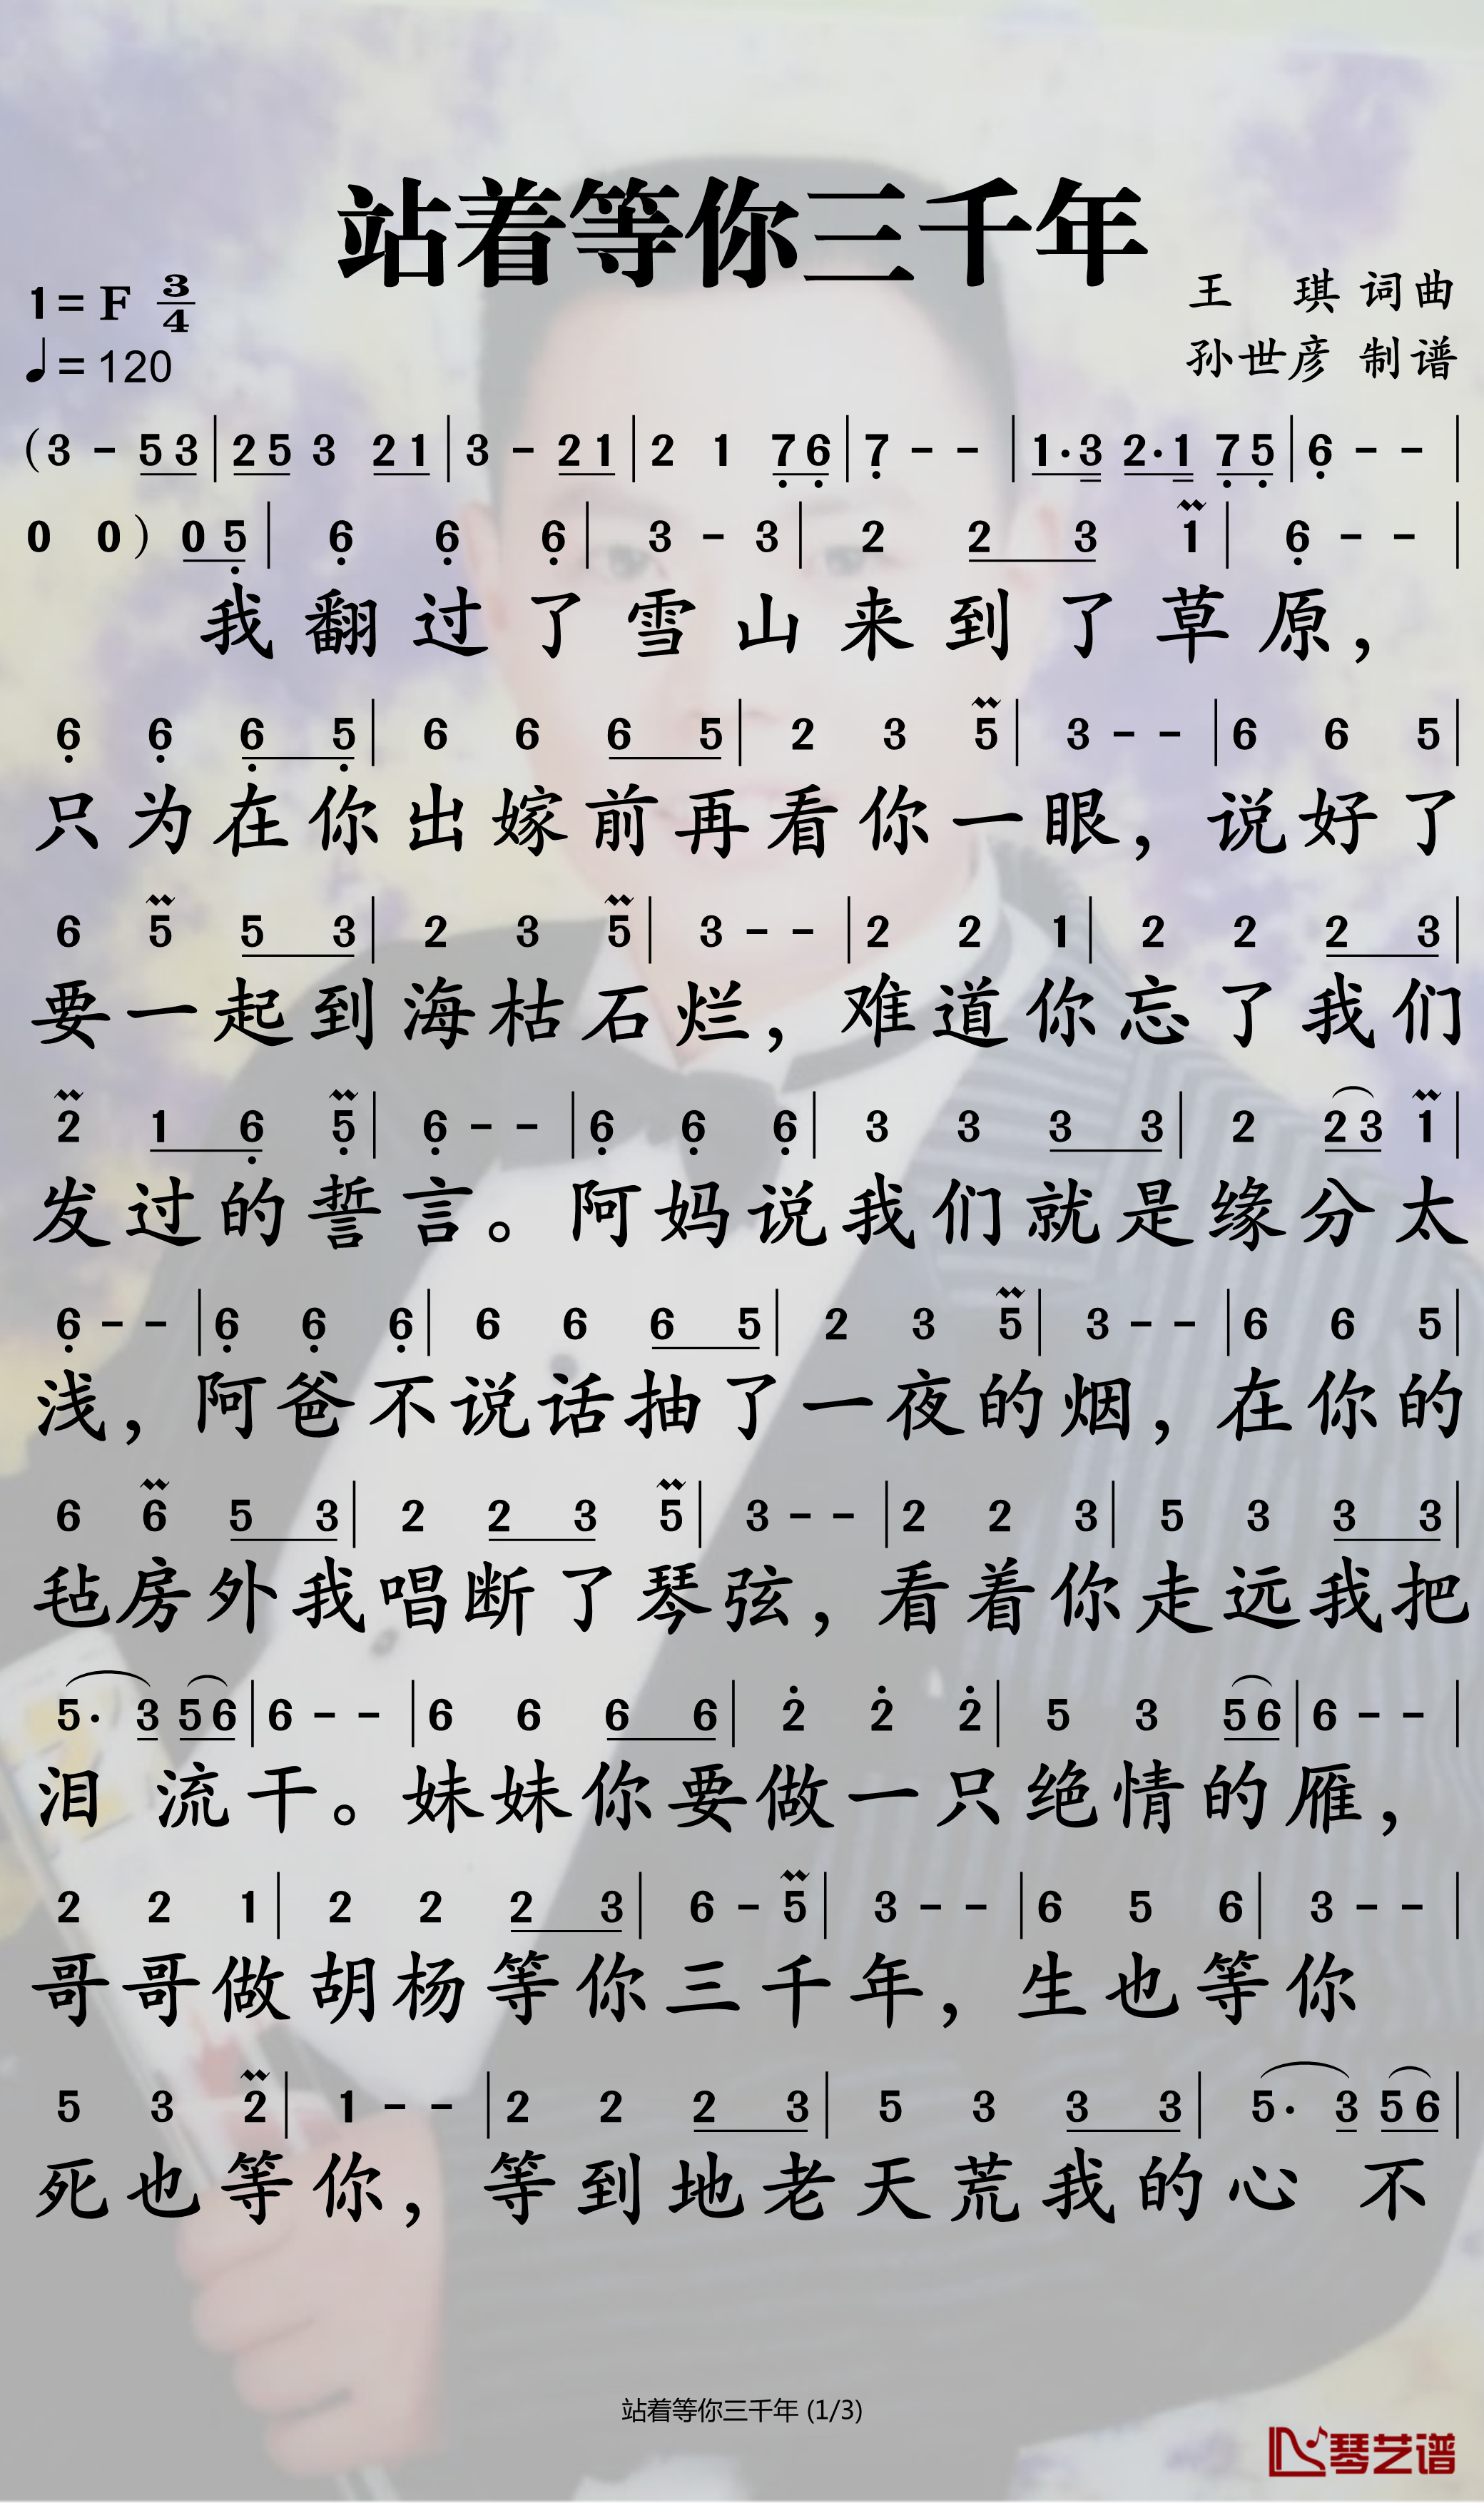 站着等你三千年
1=F 3/4
♩=120
王 琪 词曲
孙世彦 制谱
(3 - 5 3 | 2 5 3 2 1 | 3 - 2 1 | 2 1 7̣ 6̣ | 7̣ - - | 1· 3 2· 1 7̣ 5̣ | 6̣ - - |
0 0) 0 5̣ | 6̣ 6̣ 6̣ | 3 - 3 | 2 2 3 1 | 6̣ - - |
我翻过了雪山来到了草原，
6̣ 6̣ 6̣ 5̣ | 6 6 6 5 | 2 3 5 | 3 - - | 6 6 5 |
只为在你出嫁前再看你一眼，说好了
6 5 5 3 | 2 3 5 | 3 - - | 2 2 1 | 2 2 2 3 |
要一起到海枯石烂，难道你忘了我们
2 1 6̣ 5̣ | 6̣ - - | 6̣ 6̣ 6̣ | 3 3 3 3 | 2 2 3 1 |
发过的誓言。阿妈说我们就是缘分太
6̣ - - | 6̣ 6̣ 6̣ | 6 6 6 5 | 2 3 5 | 3 - - | 6 6 5 |
浅，阿爸不说话抽了一夜的烟，在你的
6 6 5 3 | 2 2 3 5 | 3 - - | 2 2 3 | 5 3 3 3 |
毡房外我唱断了琴弦，看着你走远我把
5· 3 5 6 | 6 - - | 6 6 6 6 | 2̇ 2̇ 2̇ | 5 3 5 6 | 6 - - |
泪 流干。妹妹你要做一只绝情的雁，
2 2 1 | 2 2 2 3 | 6 - 5 | 3 - - | 6 5 6 | 3 - - |
哥哥做胡杨等你三千年，生也等你
5 3 2 | 1 - - | 2 2 2 3 | 5 3 3 3 | 5· 3 5 6 |
死也等你，等到地老天荒我的心 不
站着等你三千年 (1/3)
琴艺谱